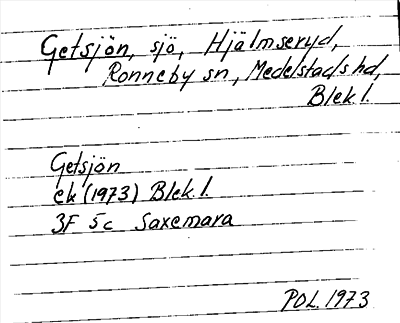 Getsjön, sjö, Hjälmseryd,
Ronneby sn, Medelstads hd,
Blek. l.
Getsjön
ek (1973) Blek. l.
3F 5c Saxemara
POL. 1973